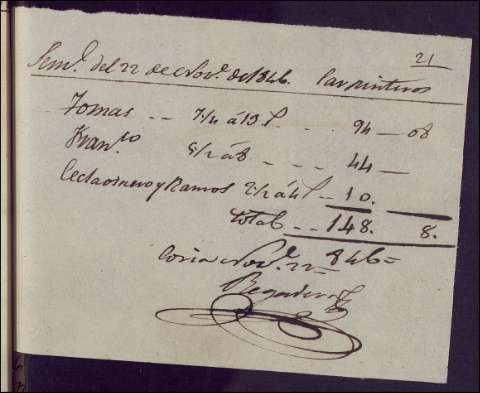 21
Semª del 22 de Novᵉ de 1846. Carpinteros
Tomas -- 7/4 á 13 -- 94 - 08
Franᶜᵒ 5/2 á 8 --- 44 -
y Ramos 2/2 á 4 -- 10.
Total -- 148. 8.
Coria Novᵉ 22 - 846 =